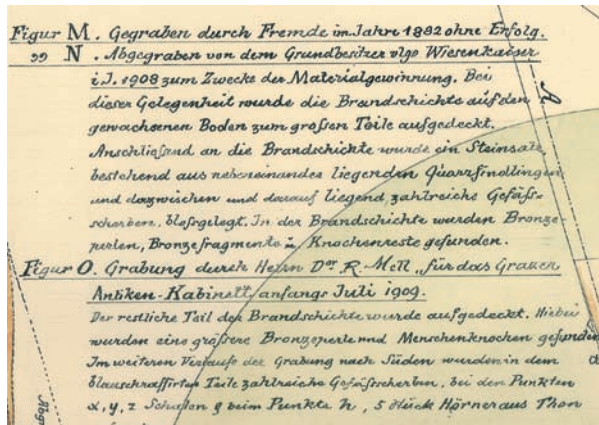 Figur M. Gegraben durch Fremde im Jahr 1882 ohne Erfolg.
" N. Abgegraben von dem Grundbesitzer vlgo Wiesenkaiser
i.J. 1908 zum Zwecke der Materialgewinnung. Bei
dieser Gelegenheit wurde die Brandschichte auf den
gewachsenen Boden zum großen Teile aufgedeckt.
Anschließend an die Brandschichte wurde ein Steinsatz
bestehend aus nebeneinander liegenden Quarzfindlingen
und dazwischen und darauf liegend, zahlreiche Gefäss-
scherben, blossgelegt. In der Brandschichte wurden Bronze-
perlen, Bronzefragmente u. Knochenreste gefunden.
Figur O. Grabung durch Herrn Dor R. Mell „für das Grazer
Antiken-Kabinett, anfangs Juli 1909.
Der restliche Teil der Brandschichte wurde aufgedeckt. Hiebei
wurden eine grössere Bronzeperle und Menschenknochen gefunden
Im weiteren Verlaufe der Grabung nach Süden wurden in dem
blauschraffirten Teile zahlreiche Gefässcherben, bei den Punkten
x, y, z Schalen & beim Punkte h, 5 Stück Hörner aus Thon
A